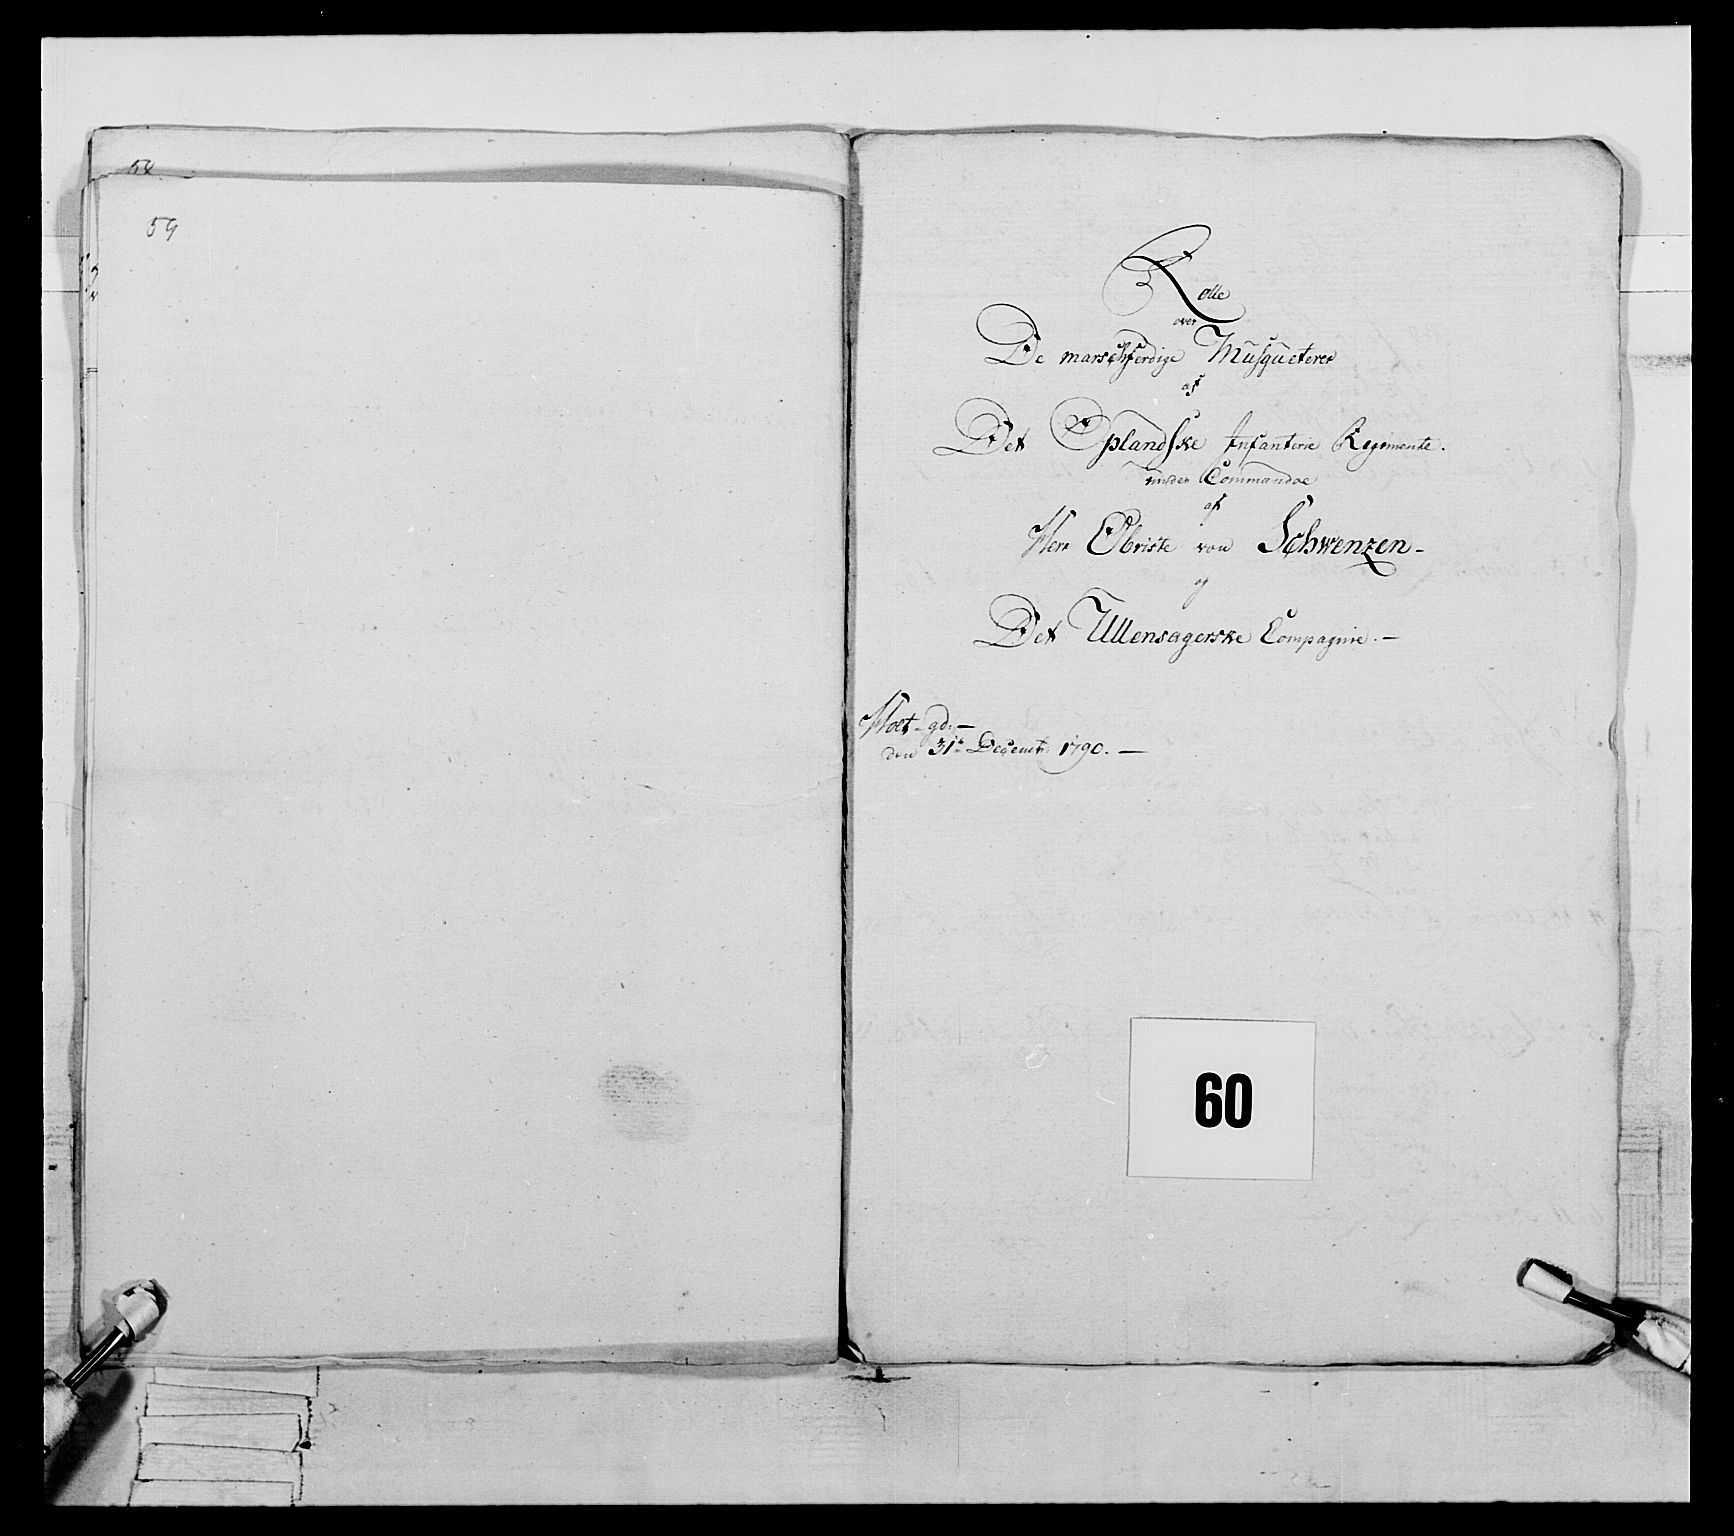 58
59
Rolle
over
De marschferdige Musqueterer
af
Det Oplandske Infanterie Regimente.
under Commandoe
af
Herr Obriste von Schwenzen-
og
Det Ullensagerske Compagnie.—
gd:—
den 31te Decembr: 1790.—
60